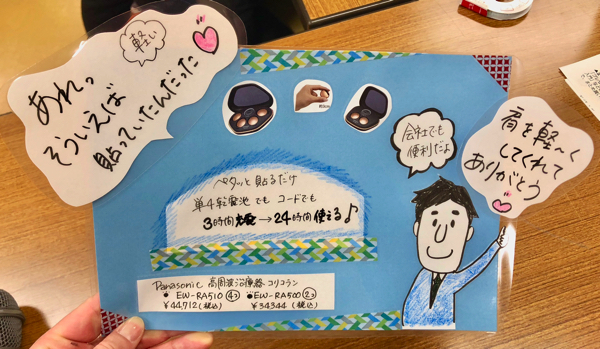 軽い
あれっ
そういえば
貼っていたんだった
会社でも
便利だよ
肩を軽~く
してくれて
ありがとう
ペタッと貼るだけ
単4乾電池でもコードでも
3時間充電→24時間使える♪
Panasonic 高周波治療器コリコラン
● EW-RA510 4コ ●EW-RA500 2コ
¥44,712(税込) ¥34344(税込)